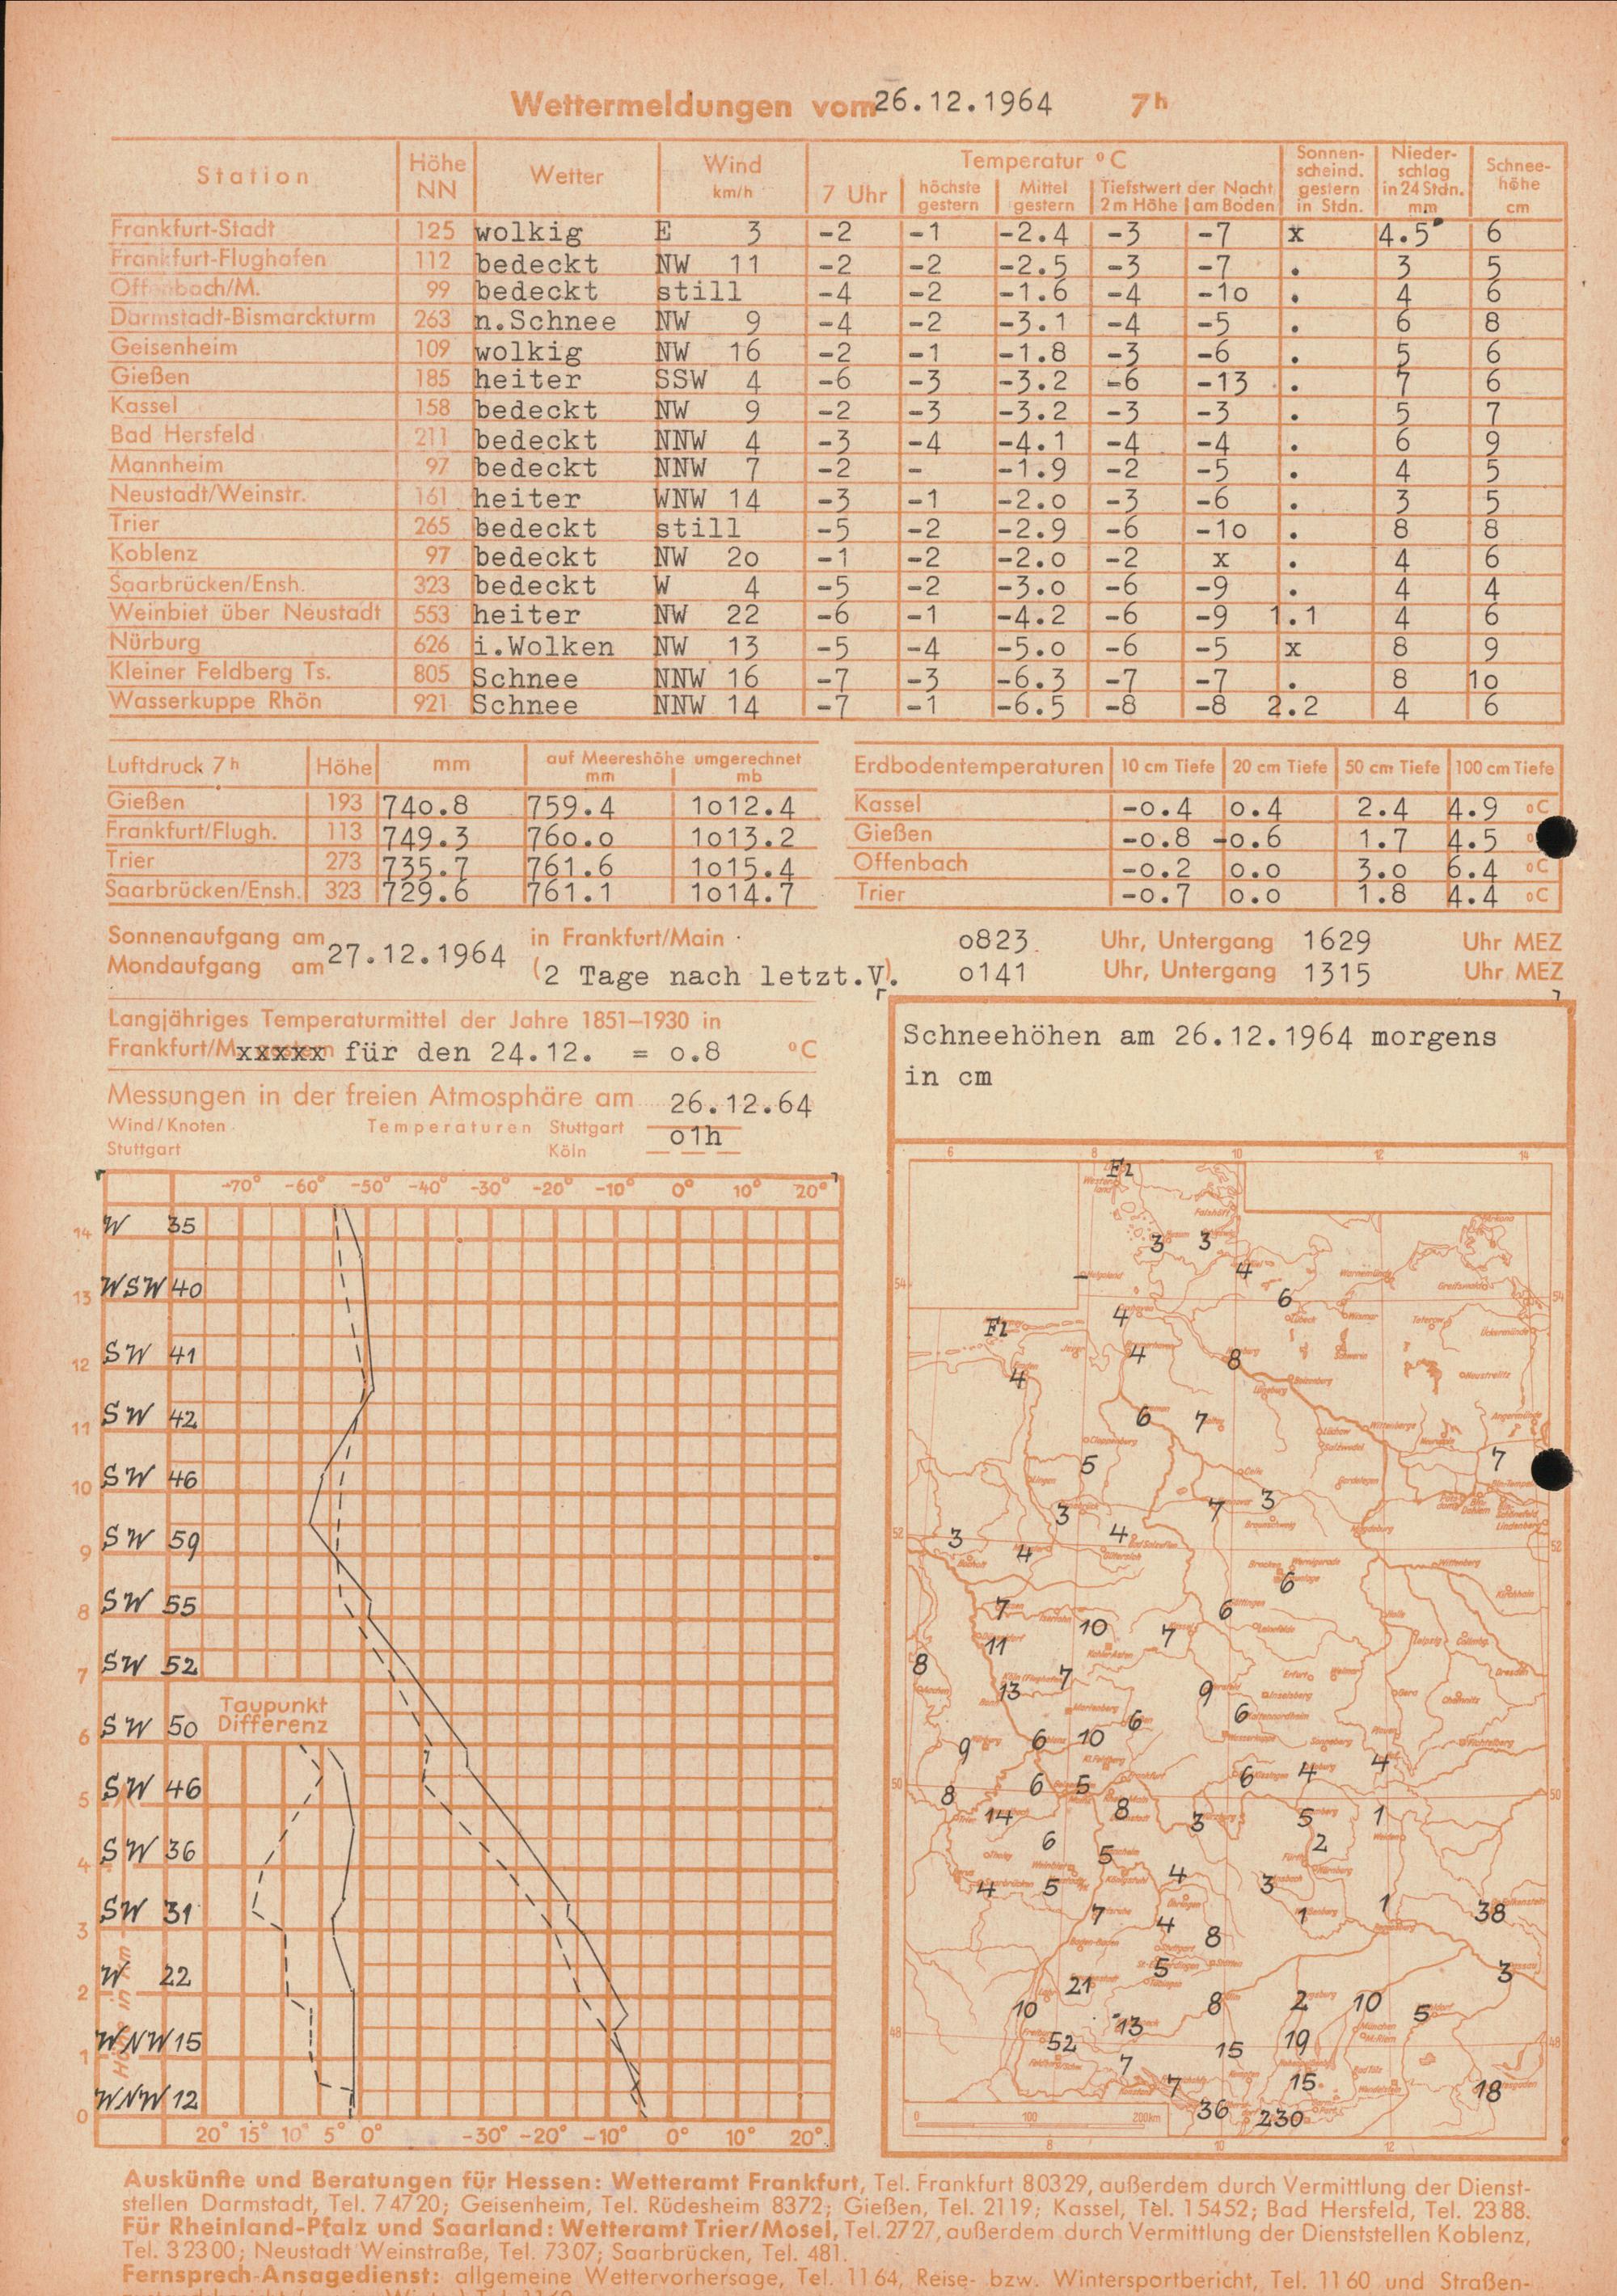 Wettermeldungen vom 26.12.1964 7h
Station Höhe NN Wetter Wind km/h Temperatur °C Sonnen-scheind. gestern in Stdn. Nieder-schlag in 24 Stdn. mm Schnee-höhe cm
7 Uhr höchste gestern Mittel gestern Tiefstwert der Nacht 2 m Höhe am Boden
Frankfurt-Stadt 125 wolkig E 3 -2 -1 -2.4 -3 -7 x 4.5 6
Frankfurt-Flughafen 112 bedeckt NW 11 -2 -2 -2.5 -3 -7 . 3 5
Offenbach/M. 99 bedeckt still -4 -2 -1.6 -4 -1o . 4 6
Darmstadt-Bismarckturm 263 n.Schnee NW 9 -4 -2 -3.1 -4 -5 . 6 8
Geisenheim 109 wolkig NW 16 -2 -1 -1.8 -3 -6 . 5 6
Gießen 185 heiter SSW 4 -6 -3 -3.2 -6 -13 . 7 6
Kassel 158 bedeckt NW 9 -2 -3 -3.2 -3 -3 . 5 7
Bad Hersfeld 211 bedeckt NNW 4 -3 -4 -4.1 -4 -4 . 6 9
Mannheim 97 bedeckt NNW 7 -2 - -1.9 -2 -5 . 4 5
Neustadt/Weinstr. 161 heiter WNW 14 -3 -1 -2.o -3 -6 . 3 5
Trier 265 bedeckt still -5 -2 -2.9 -6 -1o . 8 8
Koblenz 97 bedeckt NW 2o -1 -2 -2.o -2 x . 4 6
Saarbrücken/Ensh. 323 bedeckt W 4 -5 -2 -3.o -6 -9 . 4 4
Weinbiet über Neustadt 553 heiter NW 22 -6 -1 -4.2 -6 -9 1.1 4 6
Nürburg 626 i.Wolken NW 13 -5 -4 -5.o -6 -5 x 8 9
Kleiner Feldberg Ts. 805 Schnee NNW 16 -7 -3 -6.3 -7 -7 . 8 1o
Wasserkuppe Rhön 921 Schnee NNW 14 -7 -1 -6.5 -8 -8 2.2 4 6
Luftdruck 7h Höhe mm auf Meereshöhe umgerechnet mm mb
Gießen 193 74o.8 759.4 1o12.4
Frankfurt/Flugh. 113 749.3 76o.o 1o13.2
Trier 273 735.7 761.6 1o15.4
Saarbrücken/Ensh. 323 729.6 761.1 1o14.7
Erdbodentemperaturen 10 cm Tiefe 20 cm Tiefe 50 cm Tiefe 100 cm Tiefe
Kassel -o.4 o.4 2.4 4.9 °C
Gießen -o.8 -o.6 1.7 4.5
Offenbach -o.2 o.o 3.o 6.4 °C
Trier -o.7 o.o 1.8 4.4 °C
Sonnenaufgang am 27.12.1964 in Frankfurt/Main o823 Uhr, Untergang 1629 Uhr MEZ
Mondaufgang am (2 Tage nach letzt.V). o141 Uhr, Untergang 1315 Uhr MEZ
r
Langjähriges Temperaturmittel der Jahre 1851–1930 in
Frankfurt/M. xxxxx für den 24.12. = o.8 °C
Messungen in der freien Atmosphäre am 26.12.64
Wind/Knoten Temperaturen Stuttgart o1h
Stuttgart Köln
-70° -60° -50° -40° -30° -20° -10° 0° 10° 20°
14 W 35
13 WSW 40
12 SW 41
11 SW 42
10 SW 46
9 SW 59
8 SW 55
7 SW 52
6 SW 50 Taupunkt Differenz
5 SW 46
4 SW 36
3 SW 31
2 W 22
1 WNW 15
0 WNW 12
Höhe in km
20° 15° 10° 5° 0° -30° -20° -10° 0° 10° 20°
Schneehöhen am 26.12.1964 morgens
in cm
6 8 10 12 14
Fl
3 3
4
54 - 6 54
Fl 4
4 8
4
6 7
5 7
3 7 3
52 3 4 4 52
6
7 10 7 6
11
8 13 7 9
6 6
9 6 10
6 4 4
50 8 6 5 50
14 8 3 5 1
6 5 2
4 5 4 3
7 4 1 1 38
8
5 3
21
10 8 2 10 5
13
48 52 15 19 48
7 7 15 18
36 230
0 100 200km
8 10 12
Auskünfte und Beratungen für Hessen: Wetteramt Frankfurt, Tel. Frankfurt 80329, außerdem durch Vermittlung der Dienst-
stellen Darmstadt, Tel. 74720; Geisenheim, Tel. Rüdesheim 8372; Gießen, Tel. 2119; Kassel, Tel. 15452; Bad Hersfeld, Tel. 2388.
Für Rheinland-Pfalz und Saarland: Wetteramt Trier/Mosel, Tel. 2727, außerdem durch Vermittlung der Dienststellen Koblenz,
Tel. 32300; Neustadt Weinstraße, Tel. 7307; Saarbrücken, Tel. 481.
Fernsprech-Ansagedienst: allgemeine Wettervorhersage, Tel. 1164, Reise- bzw. Wintersportbericht, Tel. 1160 und Straßen-